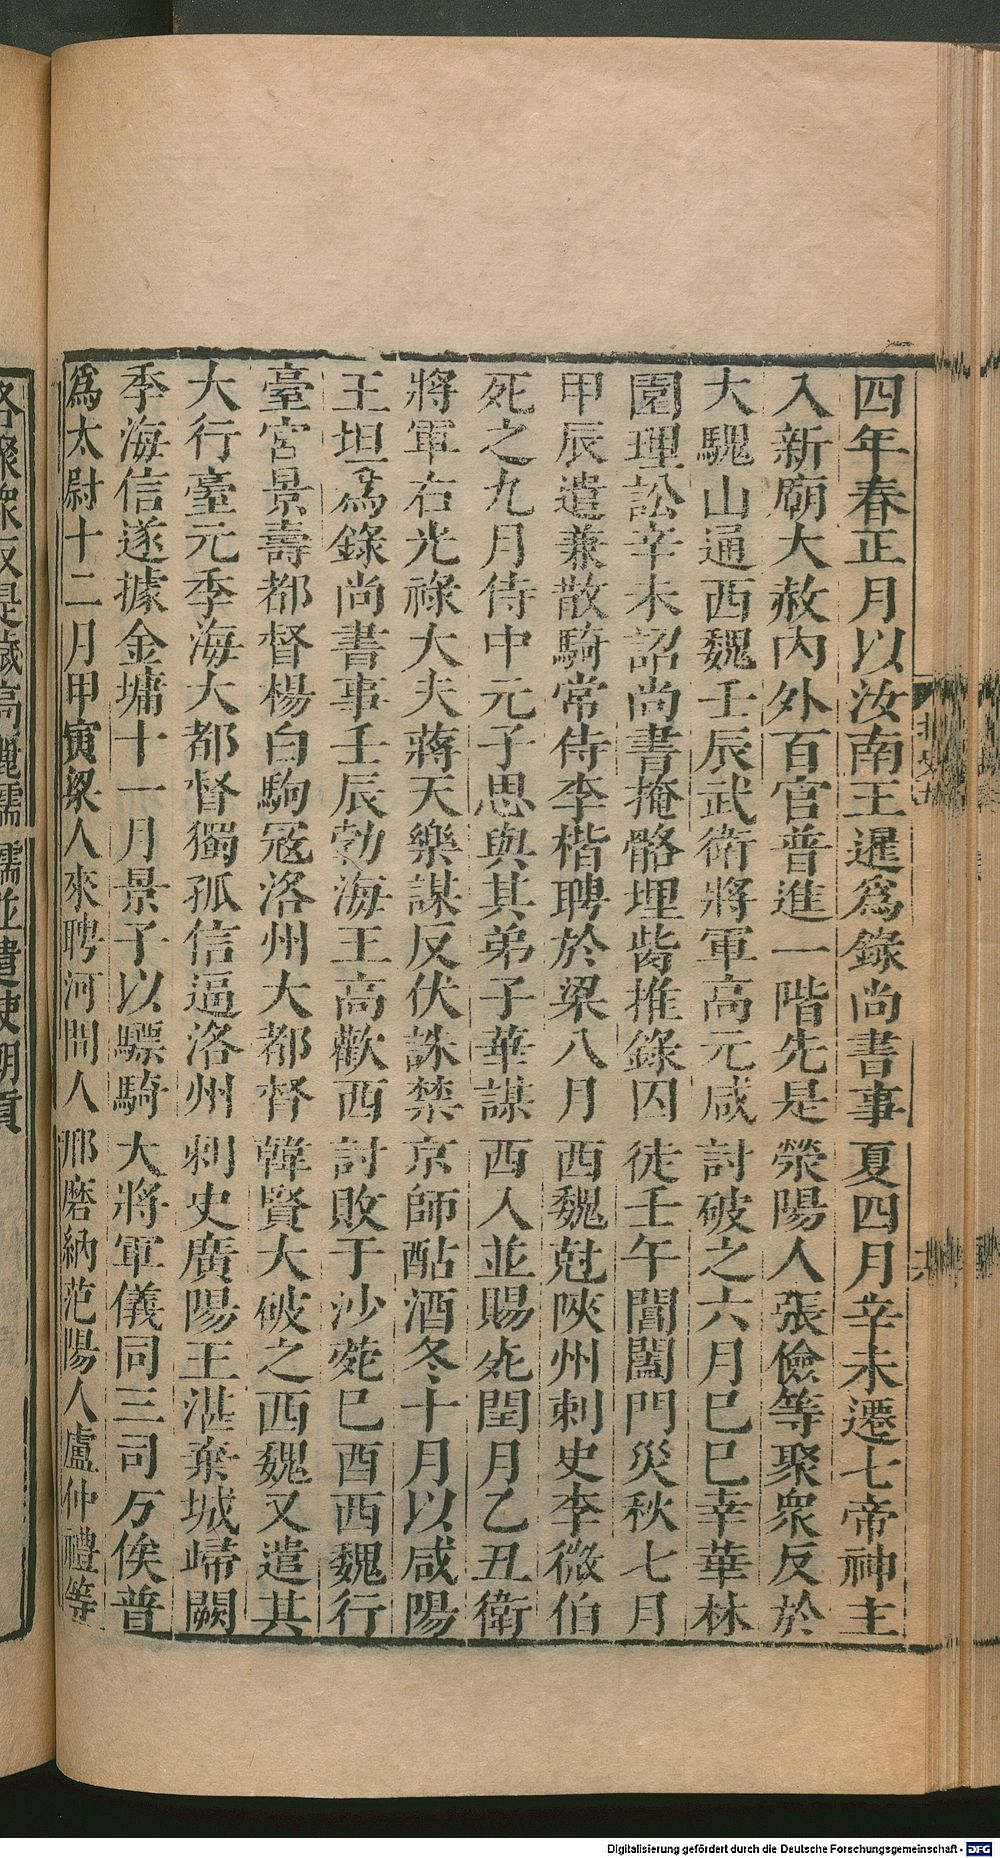 四年春正月以汝南王暹爲錄尚書事夏四月辛未遷七帝神主
入新廟大赦內外百官普進一階先是滎陽人張儉等聚衆反於
大騩山通西魏壬辰武衛將軍高元咸討破之六月巳巳幸華林
園理訟辛未詔尚書掩骼埋胔推錄囚徒壬午閶闔門災秋七月
甲辰遣兼散騎常侍李楷聘於梁八月西魏尅陝州刺史李徽伯
死之九月侍中元子思與其弟子華謀西人並賜死閏月乙丑衛
將軍右光祿大夫蔣天樂謀反伏誅禁京師酤酒冬十月以咸陽
王坦爲錄尚書事壬辰勃海王高歡西討敗于沙苑巳酉西魏行
臺宮景壽都督楊白駒冦洛州大都督韓賢大破之西魏又遣其
大行臺元季海大都督獨孤信逼洛州刺史廣陽王湛棄城歸闕
季海信遂據金墉十一月景子以驃騎大將軍儀同三司万俟普
爲太尉十二月甲寅梁人來聘河間人邢磨納范陽人盧仲禮等
各聚衆反是歲高麗蠕蠕並遣使朝貢
Digitalisierung gefördert durch die Deutsche Forschungsgemeinschaft - DFG